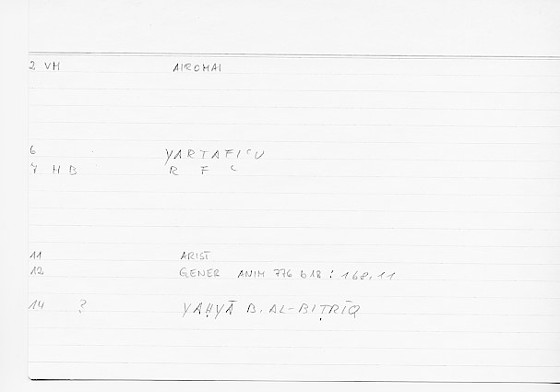 2 VM AIROMAI
6 YARTAFIʿU
7 H B R F ʿ
11 ARIST
12 GENER ANIM 776 b 18 : 168,11
14 ? YAḤYĀ B. AL-BIṬRĪQ